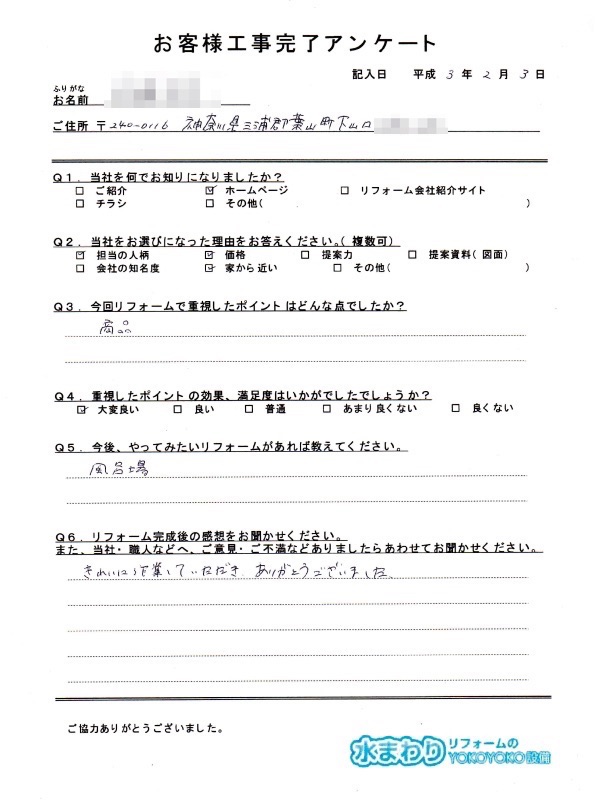 お客様工事完了アンケート
記入日 平成 3 年 2 月 3 日
ふりがな
お名前
ご住所 〒240-0116 神奈川県三浦郡葉山町下山口
Q1．当社を何でお知りになりましたか？
□ ご紹介 ☑ ホームページ □ リフォーム会社紹介サイト
□ チラシ □ その他( )
Q2．当社をお選びになった理由をお答えください。(複数可)
☑ 担当の人柄 ☑ 価格 □ 提案力 □ 提案資料(図面)
□ 会社の知名度 ☑ 家から近い □ その他( )
Q3．今回リフォームで重視したポイントはどんな点でしたか？
商品
Q4．重視したポイントの効果、満足度はいかがでしたでしょうか？
☑ 大変良い □ 良い □ 普通 □ あまり良くない □ 良くない
Q5．今後、やってみたいリフォームがあれば教えてください。
風呂場
Q6．リフォーム完成後の感想をお聞かせください。
また、当社・職人などへ、ご意見・ご不満などありましたらあわせてお聞かせください。
きれいに していただき ありがとうございました
ご協力ありがとうございました。
水まわりリフォームの
YOKOYOKO設備